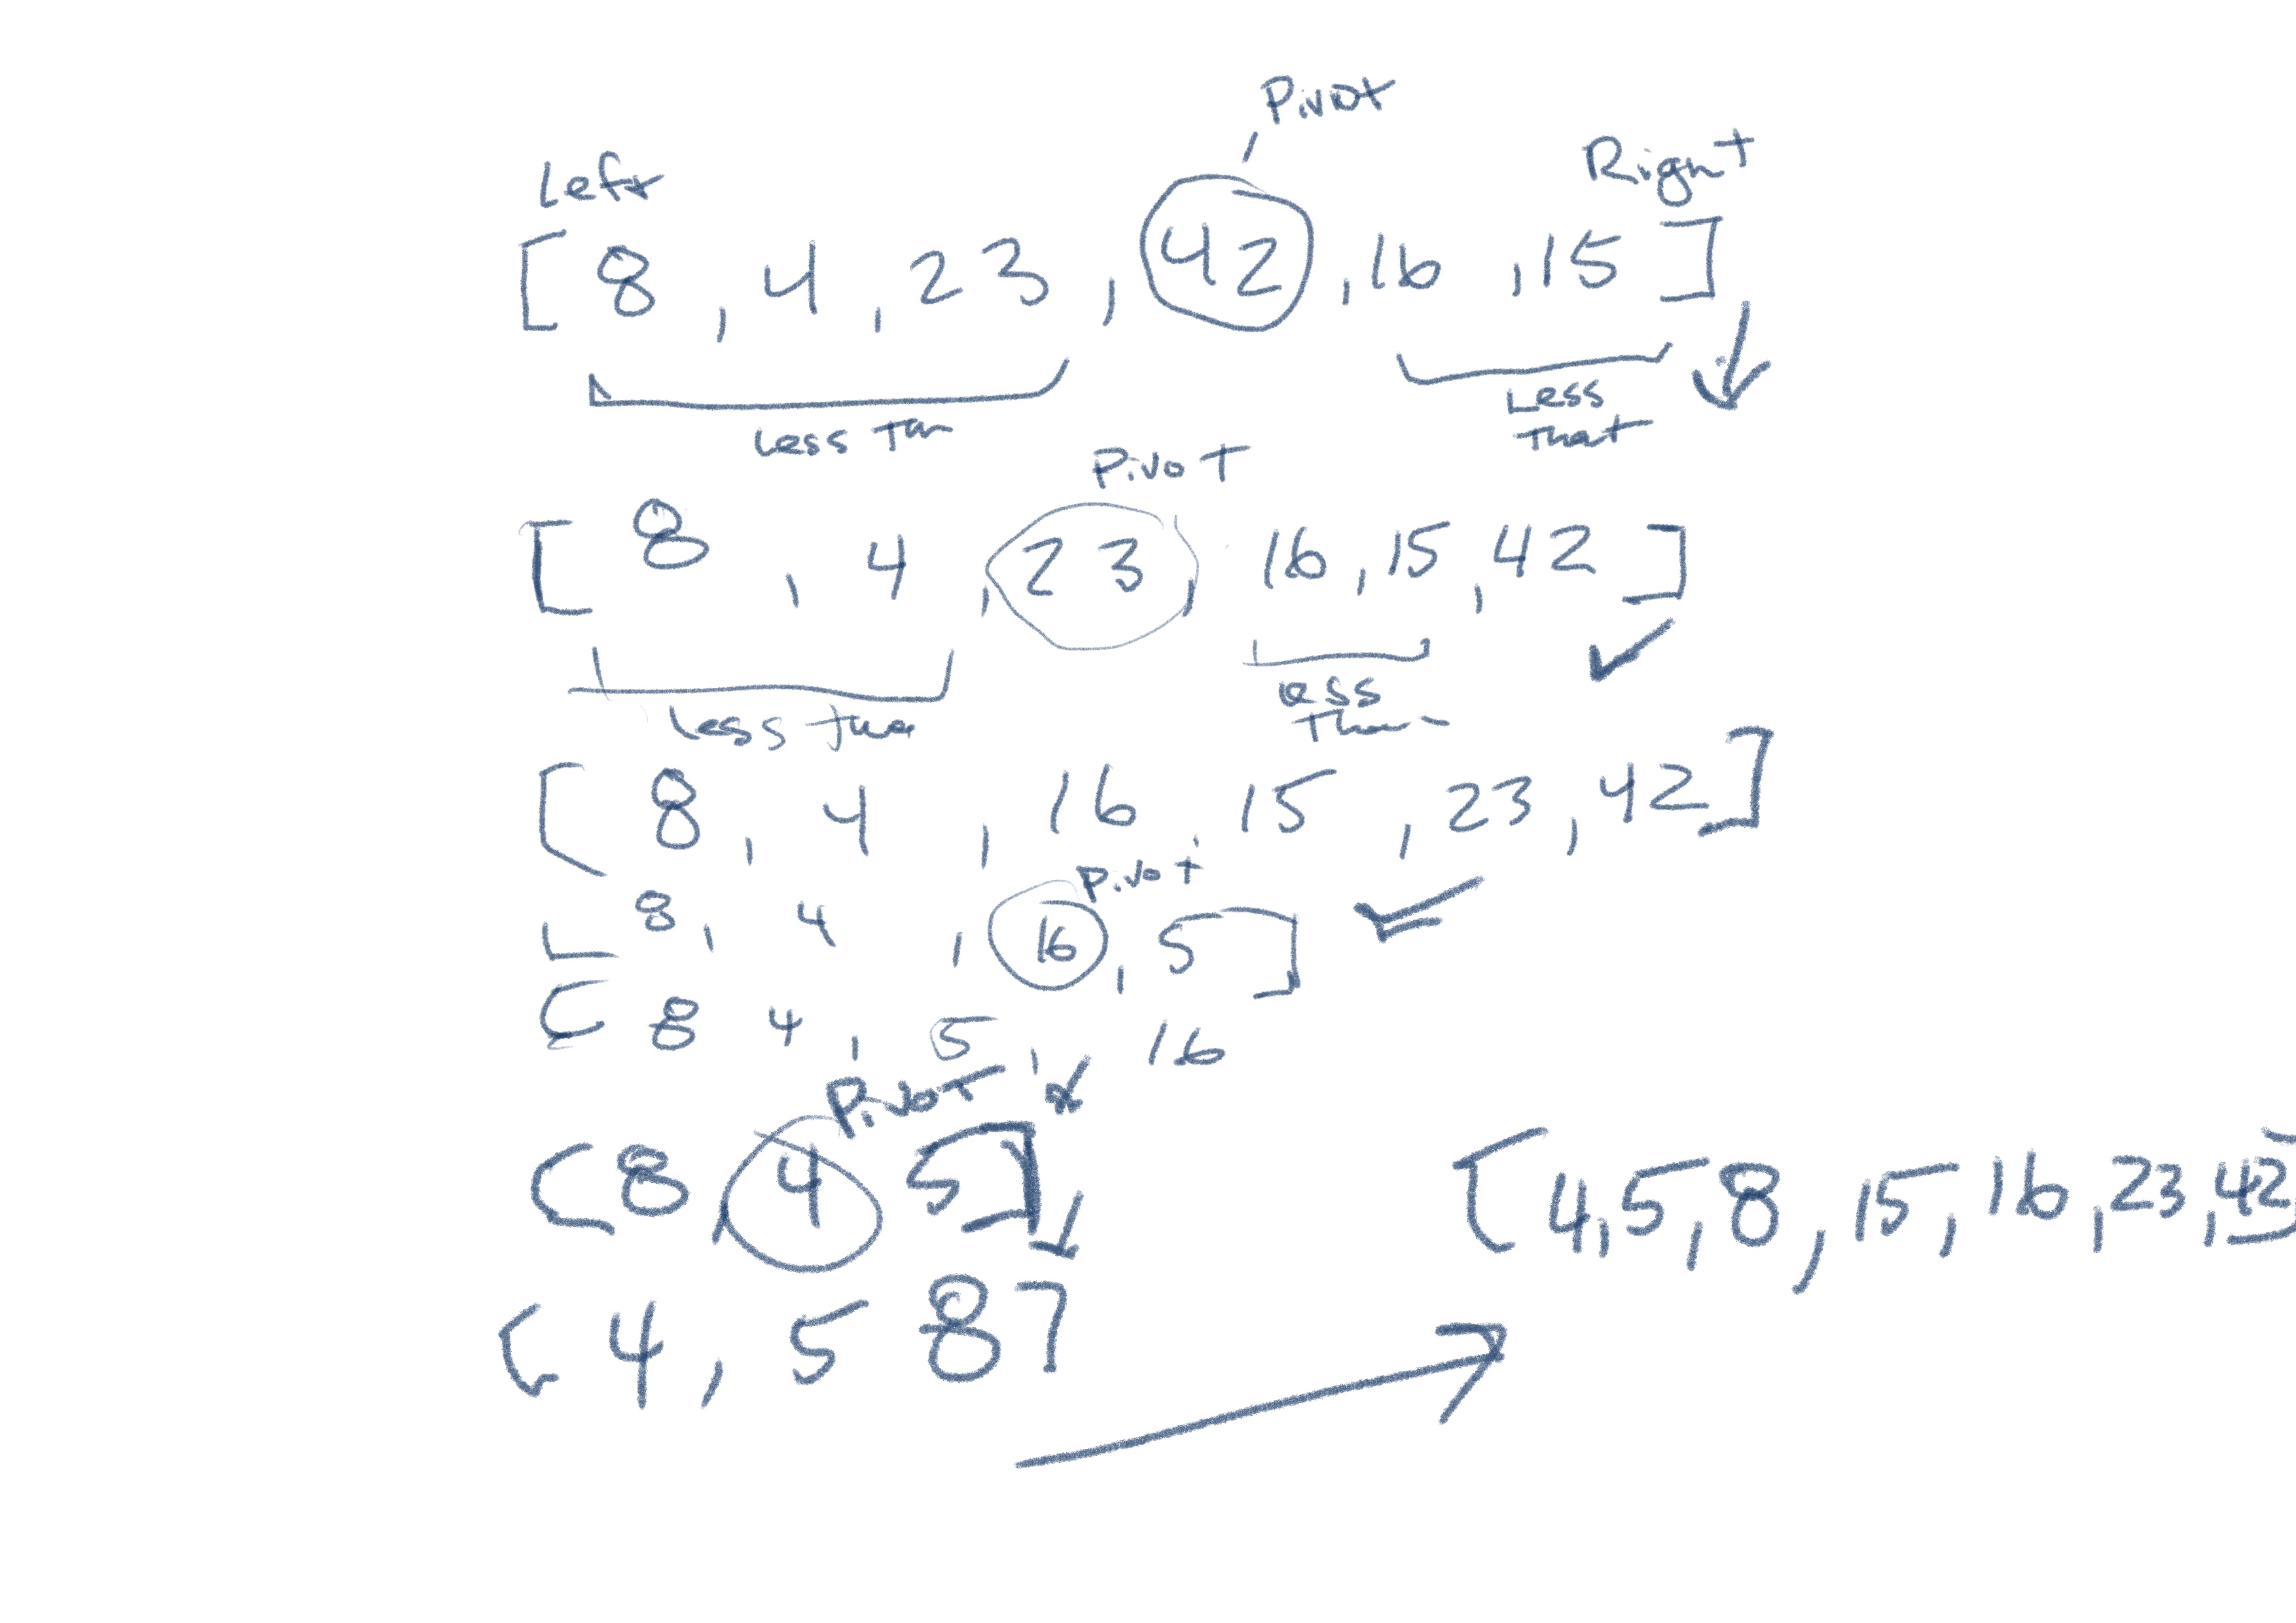 Pivot
Left Right
[ 8 , 4 , 23 , 42 , 16 , 15 ]
Less Than Less That
Pivot
[ 8 , 4 , 23 , 16 , 15 , 42 ]
Less than Less Than
[ 8 , 4 , 16 , 15 , 23 , 42 ]
Pivot
[ 8 , 4 , 16 , 5 ]
[ 8 4 , 5 , 16
Pivot
[ 8 , 4 5 ] [ 4, 5, 8, 15, 16, 23, 42 ]
[ 4 , 5 8 ]